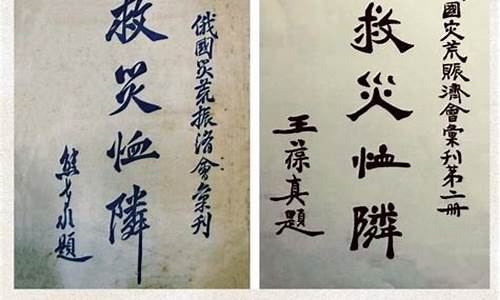 俄國災荒振濟會彙刊
救災恤隣
國災荒賑濟會彙刊第二册
救災恤隣
王葆真題